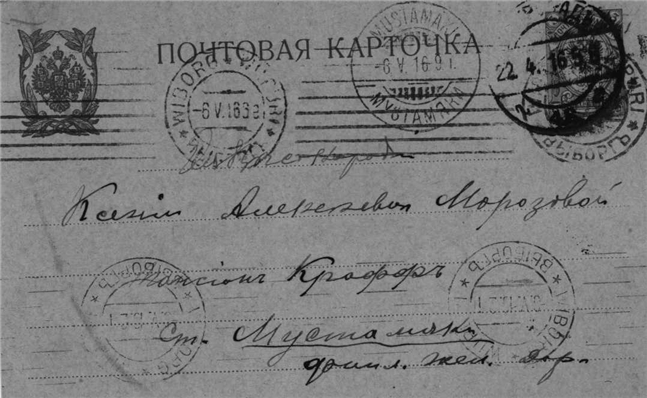 ПОЧТОВАЯ КАРТОЧКА
MUSTAMÄKI
-6 V 16 9 1.
МУСТАМЯКИ
WIBORG * WIIPURI
-6 V.16
22. 4. 16
ВЫБОРГЪ
Ксеніи Алексѣевнѣ Морозовой
Пансіонъ Краффръ
ст. Мустамяки
финл. жел. дор.
ВЫБОРГЪ
ВЫБОРГЪ